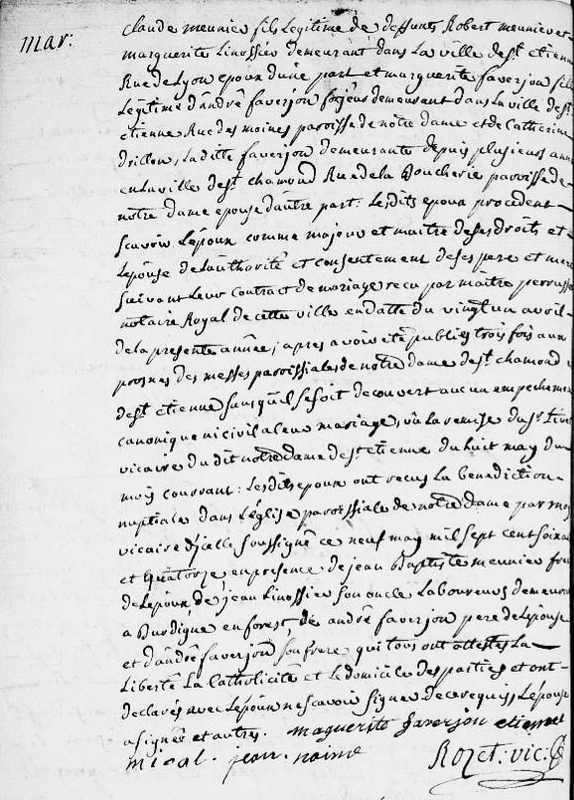 mar:
Claude meunier fils Legitime de deffunts Robert meunier et
marguerite Linossier demeurant dans La ville de st etienne
Rue de Lyon epoux d'une part et marguerite faverjon fille
Légitime d'andré faverjon demeurant dans La ville de st
etienne Rue des moines paroisse de notre dame et de Catherine
drillon, La ditte faverjon demeurante depuis plusieurs anné
en La ville de st chamond Rue de la Boucherie paroisse de
notre dame epouse d'autre part. Lesdits epoux procedent
scavoir L'époux comme majeur et maitre de ses droits et
L'épouse de L'authorité et consentement de ses pere et mere
suivant Leur Contract de mariage recu par maitre
notaire Royal de cette ville en datte du vingt un avril
de la presente année; apres avoir été publiés trois fois aux
prosnes des messes paroissiales de notre dame de st chamond
de st etienne sans qu'il se soit decouvert aucun empechement
canonique ni civil a Leur mariage, vû La remise du sr
vicaire du dit notre dame de st etienne du huit may du
moy courrant: Lesdits epoux ont recus La benediction
nuptiale dans L'église paroissiale de notre Dame par moy
vicaire d'icelle soussigné ce neuf may mil sept cent soixan
et quatorze en presence de jean Baptiste meunier frere
de L'époux, de jean Linossier son oncle Laboureurs demeura
a Burdigne en forest, de andré faverjon pere de L'épouse
et d'andré faverjon son frere qui tous ont attestés La
Liberté La Catholicité et Le domicile des parties et ont
declarés avec L'époux ne scavoir signer de ce requis, L'épouse
a signée et autres. maguerite faverjon etienne
mical. jean. noime Rozet. vic: